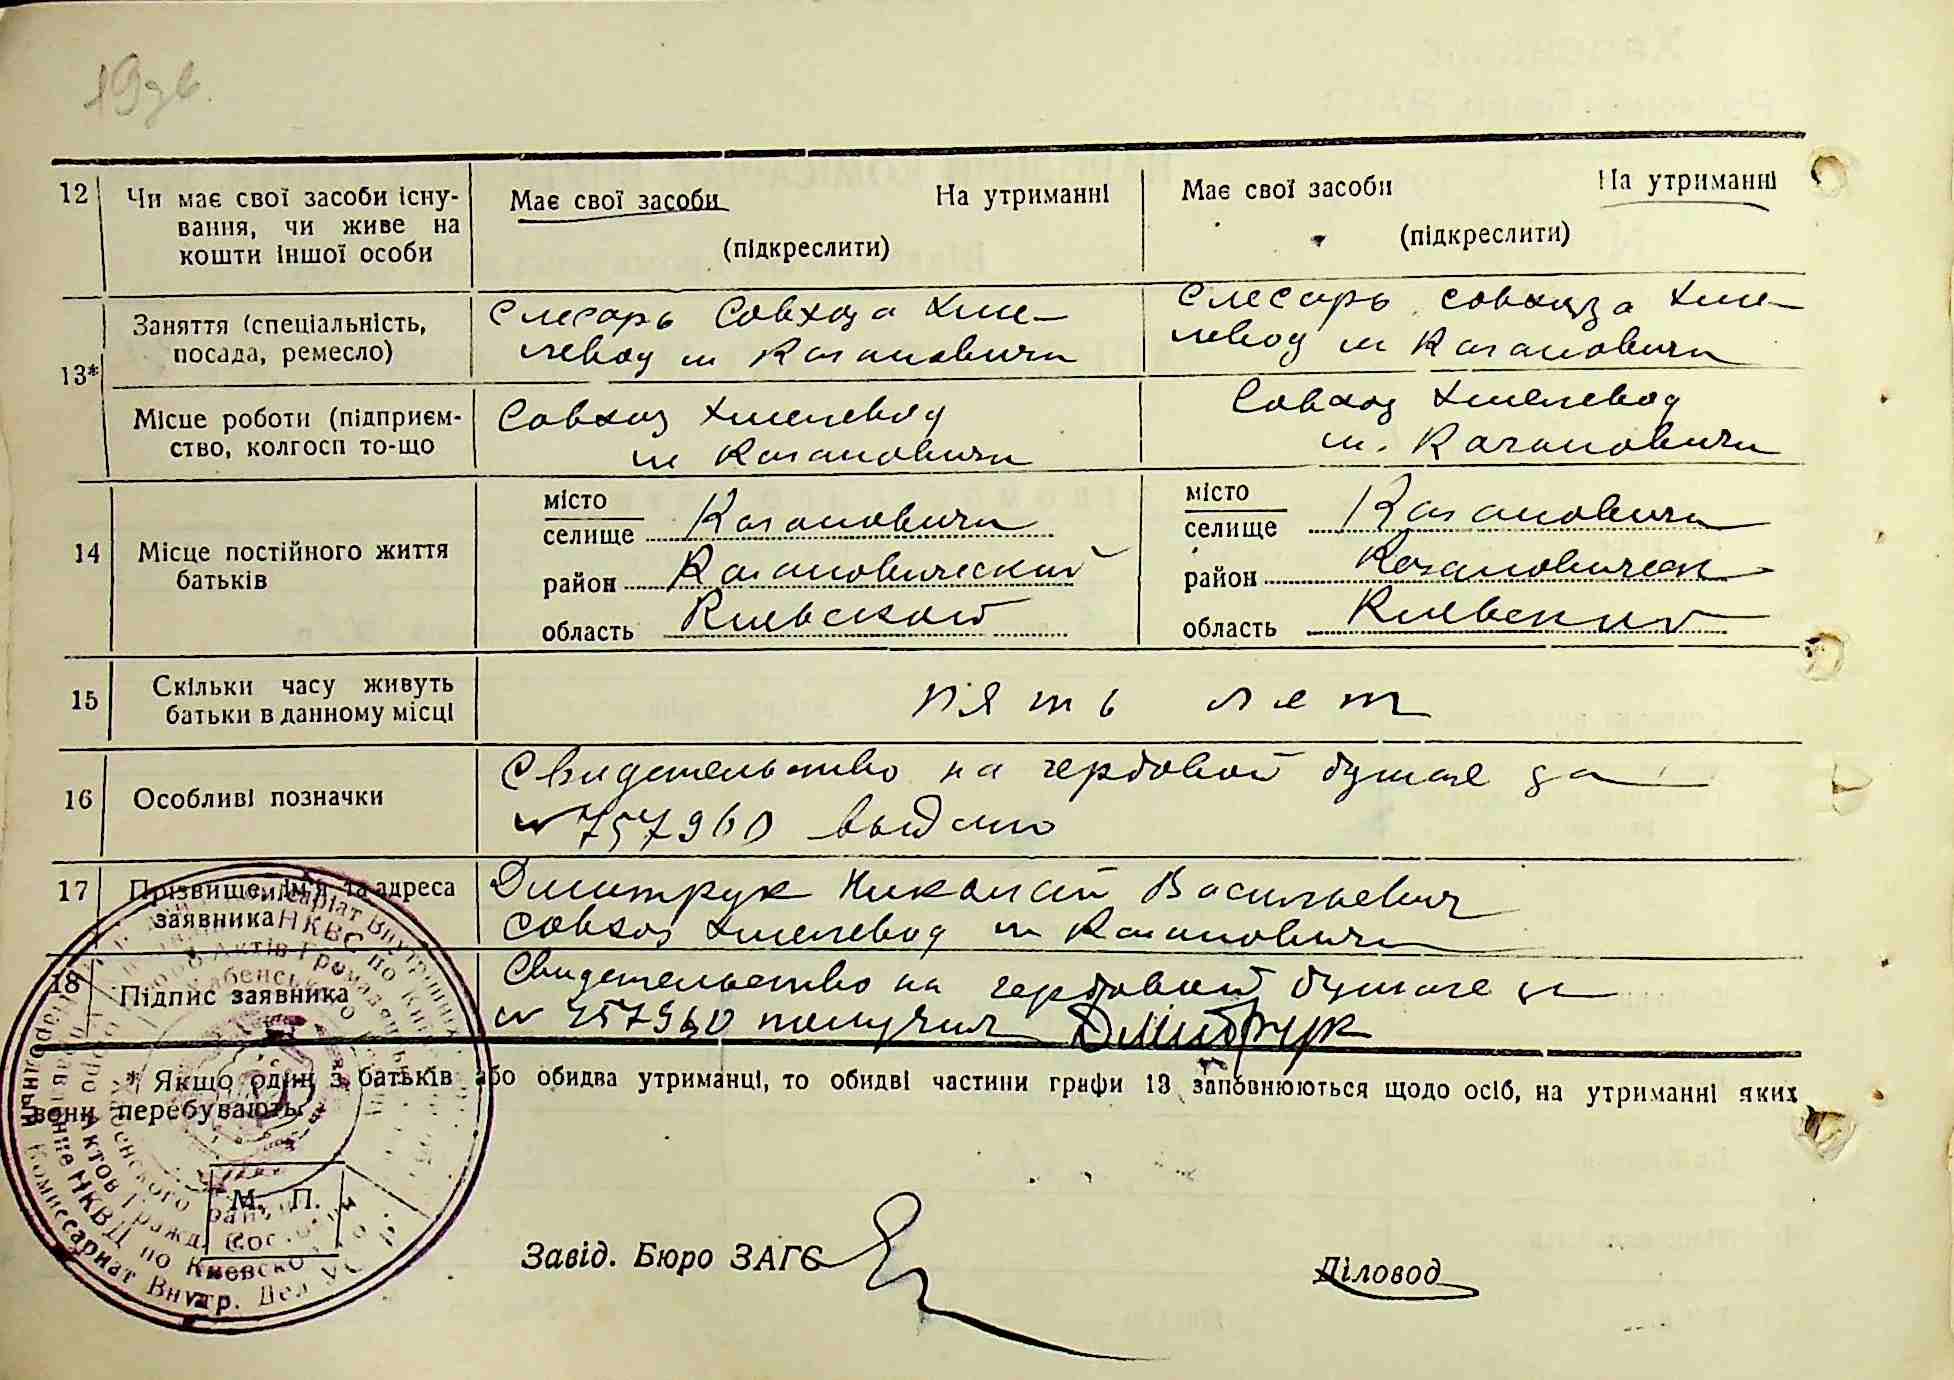 12
Чи має свої засоби існу-
вання, чи живе на
кошти іншої особи
Має свої засоби На утриманні
(підкреслити)
Має свої засоби На утриманні
(підкреслити)
13*
Заняття (спеціальність,
посада, ремесло)
Слесарь Совхоза Хме-
левод м Кагановичи
Слесарь совхоза Хме-
левод м Кагановичи
Місце роботи (підприєм-
ство, колгосп то-що
Совхоз Хмелевод
м Кагановичи
Совхоз Хмелевод
м. Кагановичи
14
Місце постійного життя
батьків
місто
селище Кагановичи
район Кагановический
область Киевской
місто
селище Кагановичи
район Кагановическ
область Киевский
15
Скільки часу живуть
батьки в данному місці
пять лет
16
Особливі позначки
Свидетельство на гербовой бумаге за
№ 757960 выдано
17
Прізвище, ім'я та адреса
заявника
Дмитрук Николай Васильевич
совхоз Хмелевод м Кагановичи
18
Підпис заявника
Свидетельство на гербовой бумаге за
№ 757960 получил Дмитрук
* Якщо один з батьків або обидва утриманці, то обидві частини графи 13 заповнюються щодо осіб, на утриманні яких
вони перебувають.
М. П.
Завід. Бюро ЗАГС
Діловод